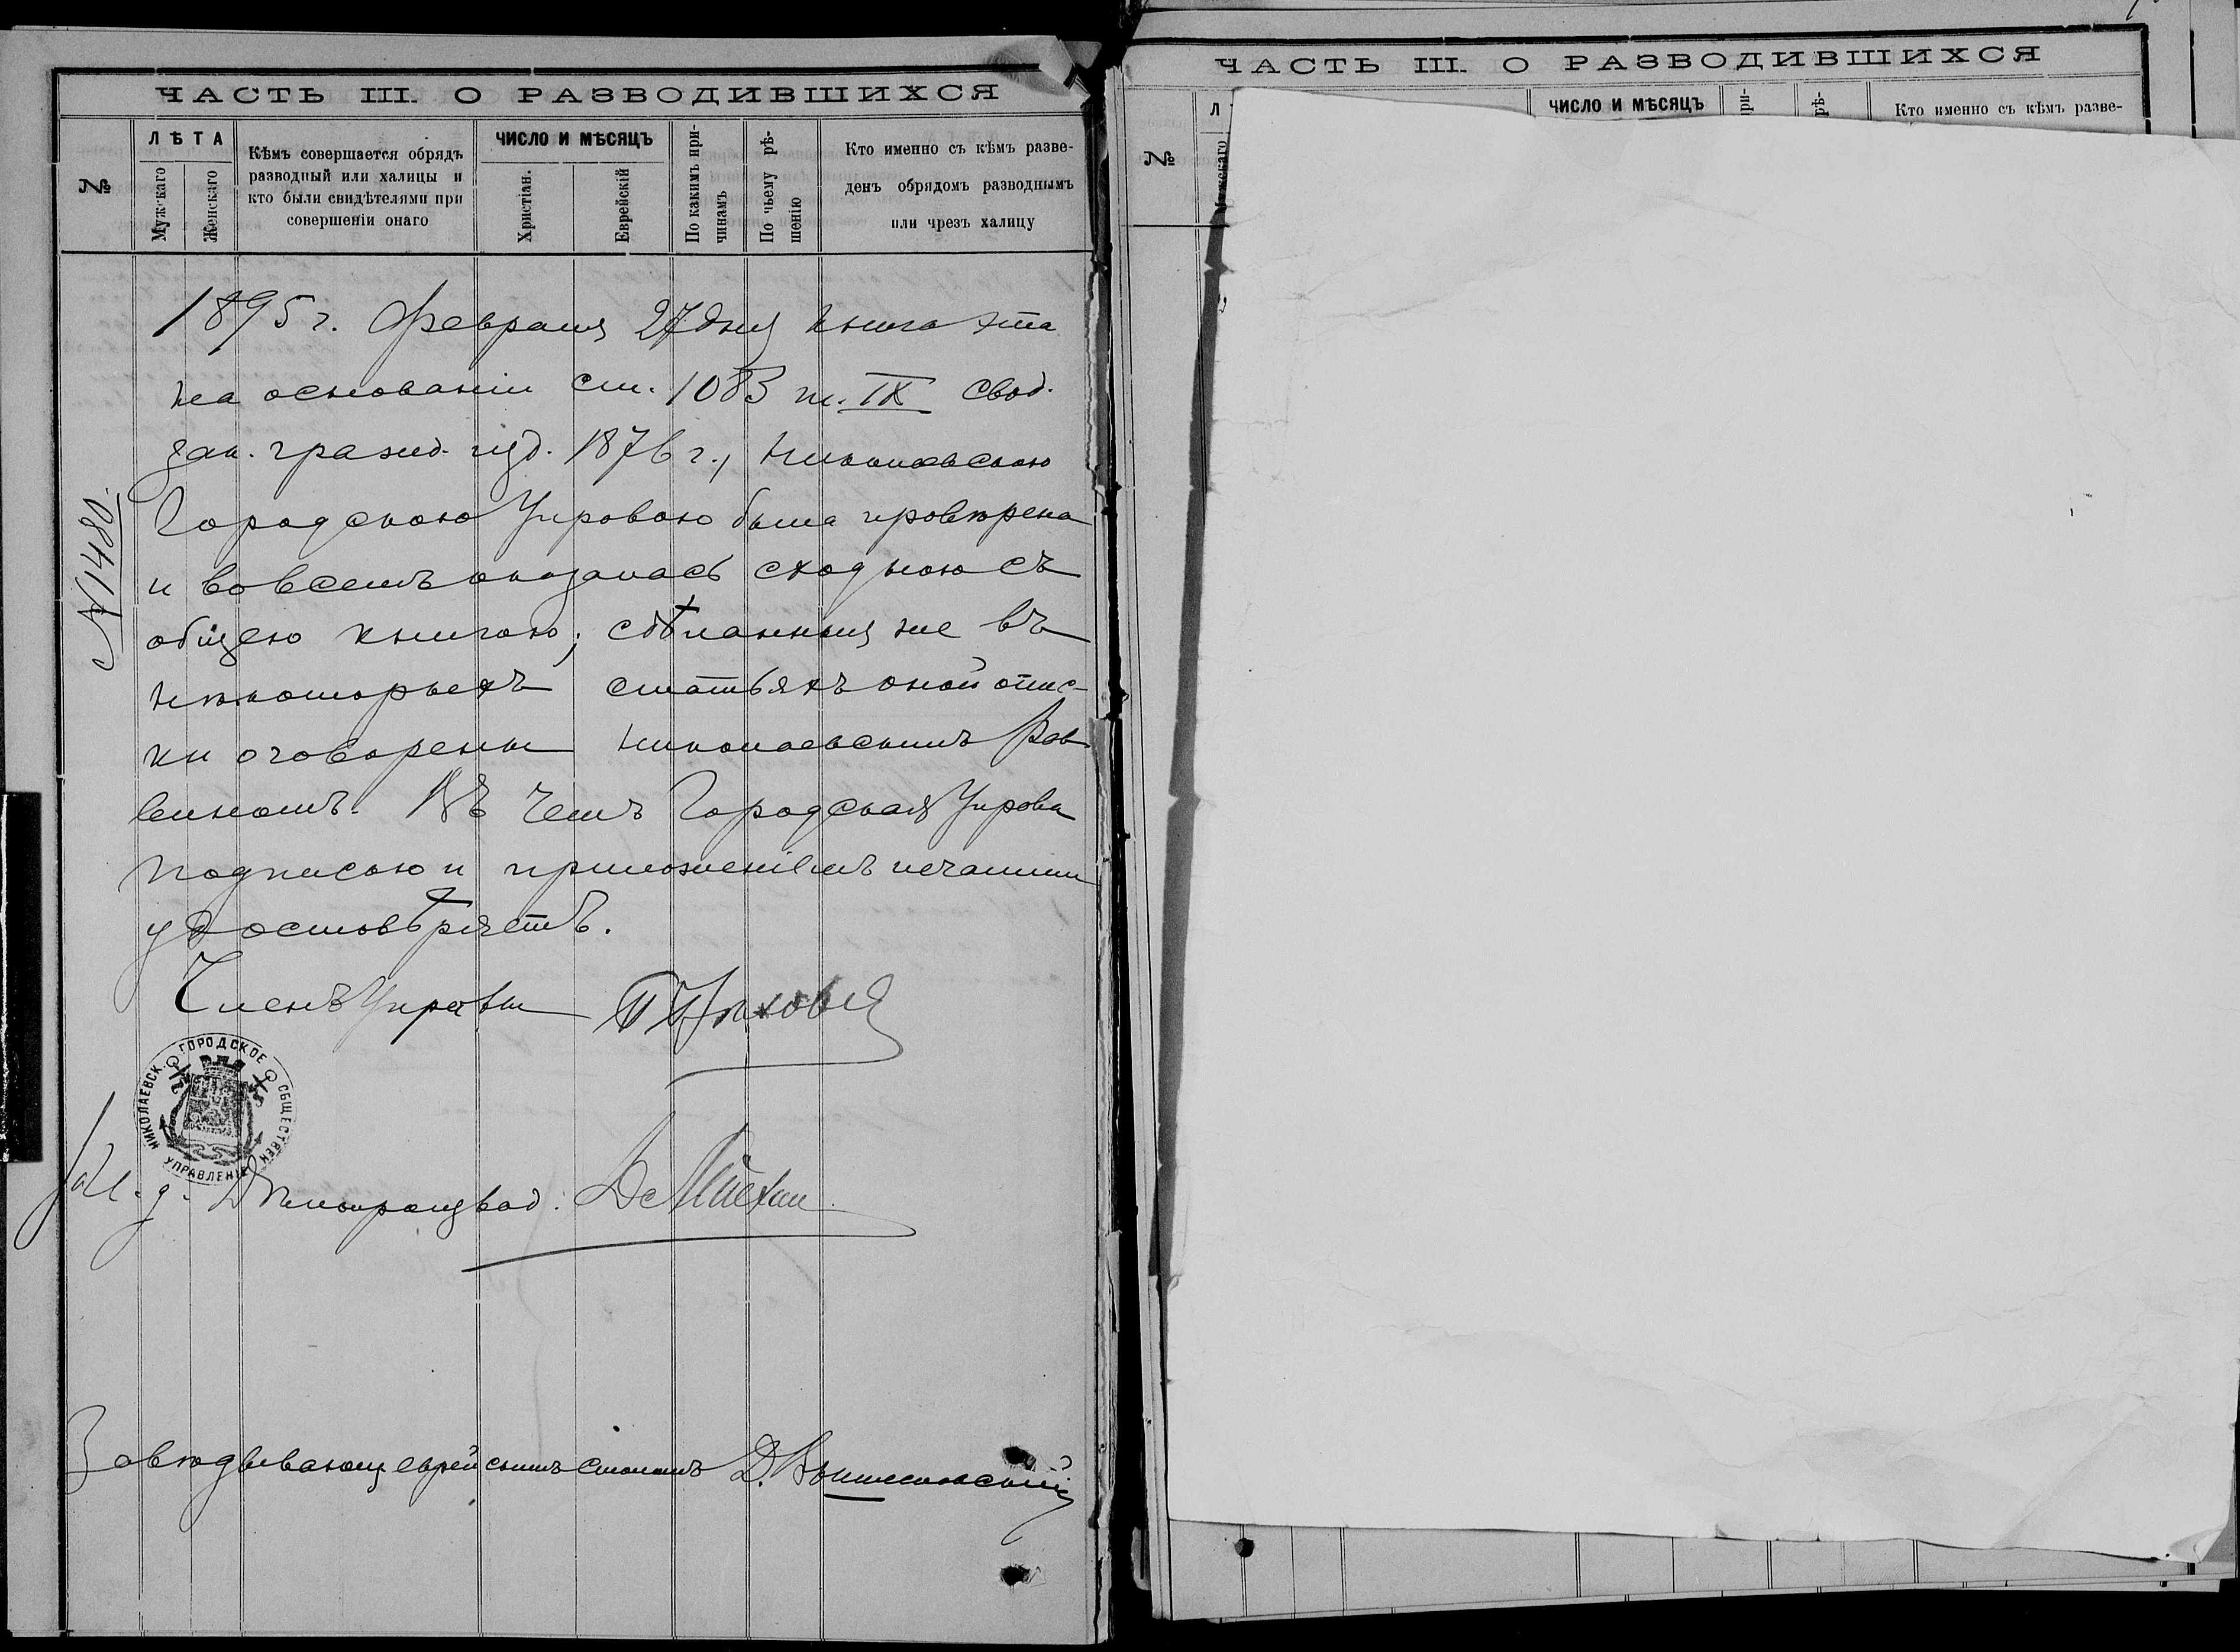 ЧАСТЬ III. О РАЗВОДИВШИХСЯ
№
ЛѢТА
Мужскаго
Женскаго
Кѣмъ совершается обрядъ
разводный или халицы и
кто были свидѣтелями при
совершеніи онаго
ЧИСЛО И МѢСЯЦЪ
Христіан.
Еврейскій
По какимъ при-
чинамъ
По чьему рѣ-
шенію
Кто именно съ кѣмъ разве-
денъ обрядомъ разводнымъ
или чрезъ халицу
1895 г. Февраля 27 дня книга эта
на основаніи ст. 1083 т. IX свод.
зак. гражд. изд. 1876 г., Николаевскою
Городскою Управою была провѣрена
и во всемъ оказалась сходною съ
общею книгою; сдѣланныя же въ
нѣкоторыхъ статьяхъ оной опис-
ки оговорены Николаевскимъ Рав-
виномъ. Въ чемъ Городская Управа
подписью и приложеніемъ печати
удостовѣряетъ.
№ 1480.
Членъ Управы
НИКОЛАЕВСК. ГОРОДСКОЕ ОБЩЕСТВЕН.
УПРАВЛЕНІЕ
И. д. Дѣлопроизвод.
Завѣдывающ. еврейскимъ столомъ Д.
ЧАСТЬ III. О РАЗВОДИВШИХСЯ
№
Л
Мужскаго
ЧИСЛО И МѢСЯЦЪ
ри-
рѣ-
Кто именно съ кѣмъ разве-